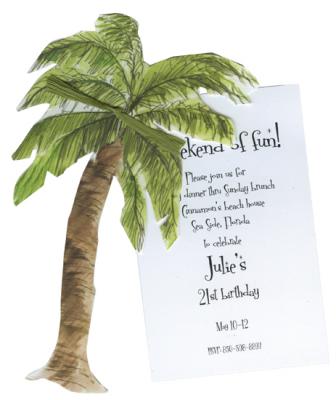 of fun!
Please join us for
dinner thru Sunday brunch
Cinnamon's beach house
Sea Side, Florida
to celebrate
Julie's
21st birthday
May 10-12